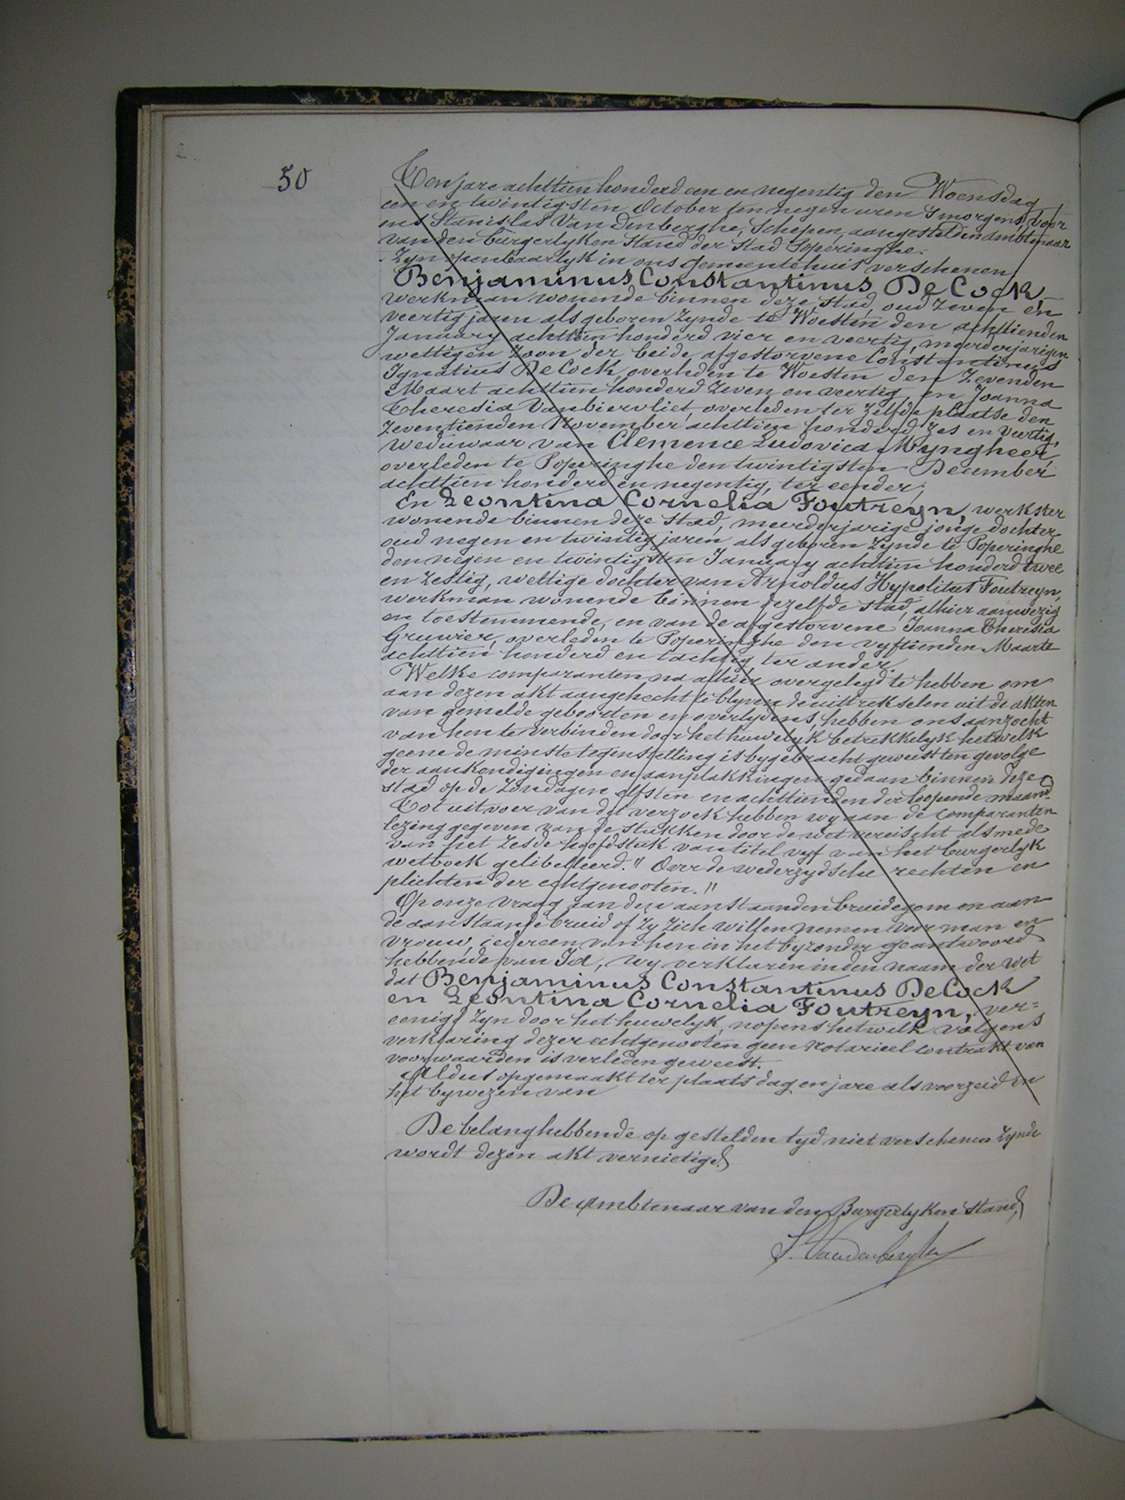 50
Ten jare achttien honderd een en negentig den Woensdag
een en twintigsten October ten negen uren s'morgens, voor
ons Stanislas Van Denberghe, Schepen, aangesteld in ambtenaar
van den burgerlyken stand der stad Poperinghe.
Zyn openbaarlyk in ons gemeentehuis verschenen
Benjaminus Constantinus De Cock,
werkman wonende binnen deze stad, oud zeven en
veertig jaren als geboren zynde te Woesten den achttienden
January achttien honderd vier en veertig, meerderjarigen
wettigen zoon der beide afgestorvene Constantinus
Ignatius De Cock, overleden te Woesten den zevenden
Maart achttien honderd zeven en veertig, en Joanna
Theresia Vanbiervliet, overleden ter zelfde plaatse den
zeventienden November achttien honderd zes en veertig,
weduwaar van Clemence Ludovica Myngheer
overleden te Poperinghe den twintigsten December
achttien honderd en negentig, ter eender;
En Leontina Cornelia Foutreyn, werkster
wonende binnen deze stad, meerderjarige jonge dochter
oud negen en twintig jaren als geboren zynde te Poperinghe
den negen en twintigsten January achttien honderd twee
en zestig, wettige dochter van Arnoldus Hypolitus Foutreyn,
werkman wonende binnen dezelfde stad, alhier aanwezig
en toestemmende, en van de afgestorvene Joanna Theresia
Gruwier, overleden te Poperinghe den vyftienden Maarte
achttien honderd en tachtig ter ander.
Welke comparanten na alhier overgelegd te hebben om
aan dezen akt aangehecht te blyven de uittrekselen uit de akten
van gemelde geboorten en overlydens, hebben ons aanzocht
van hen te verbinden door het huwelyk betrekkelyk hetwelk
geene de minste tegenstelling is bygebracht geweest ten gevolge
der aankondigingen en aanplakkingen gedaan binnen deze
stad op de Zondagen elfsten en achttienden der loopende maand
Tot uitvoer van dit verzoek hebben wy aan de comparanten
lezing gegeven van de stukken door de wet vereischt alsmede
van het zesde hoofdstuk van titel vyf van het burgerlyk
wetboek gelibelleerd. " Over de wederzydsche rechten en
plichten der echtgenooten. "
Op onze vraag aan deze aanstaanden bruidegom en aan
de aanstaande bruid of zy zich willen nemen voor man en
vrouw, iedereen van hen in het byzonder geantwoord
hebbende van Ja, wy verklaren in den naam der wet
dat Benjaminus Constantinus De Cock
en Leontina Cornelia Foutreyn, ver-
eenigd zyn door het huwelyk, nopens hetwelk volgens
verklaring dezer echtgenooten geen notarieel contrakt van
voorwaarden is verleden geweest.
Aldus opgemaakt ter plaats dag en jare als voorzeid in
het bywezen van
De belanghebbende op gestelden tyd niet verschenen zynde
wordt dezen akt vernietigd
De ambtenaar van den Burgerlyken stand,
S. Vandenberghe